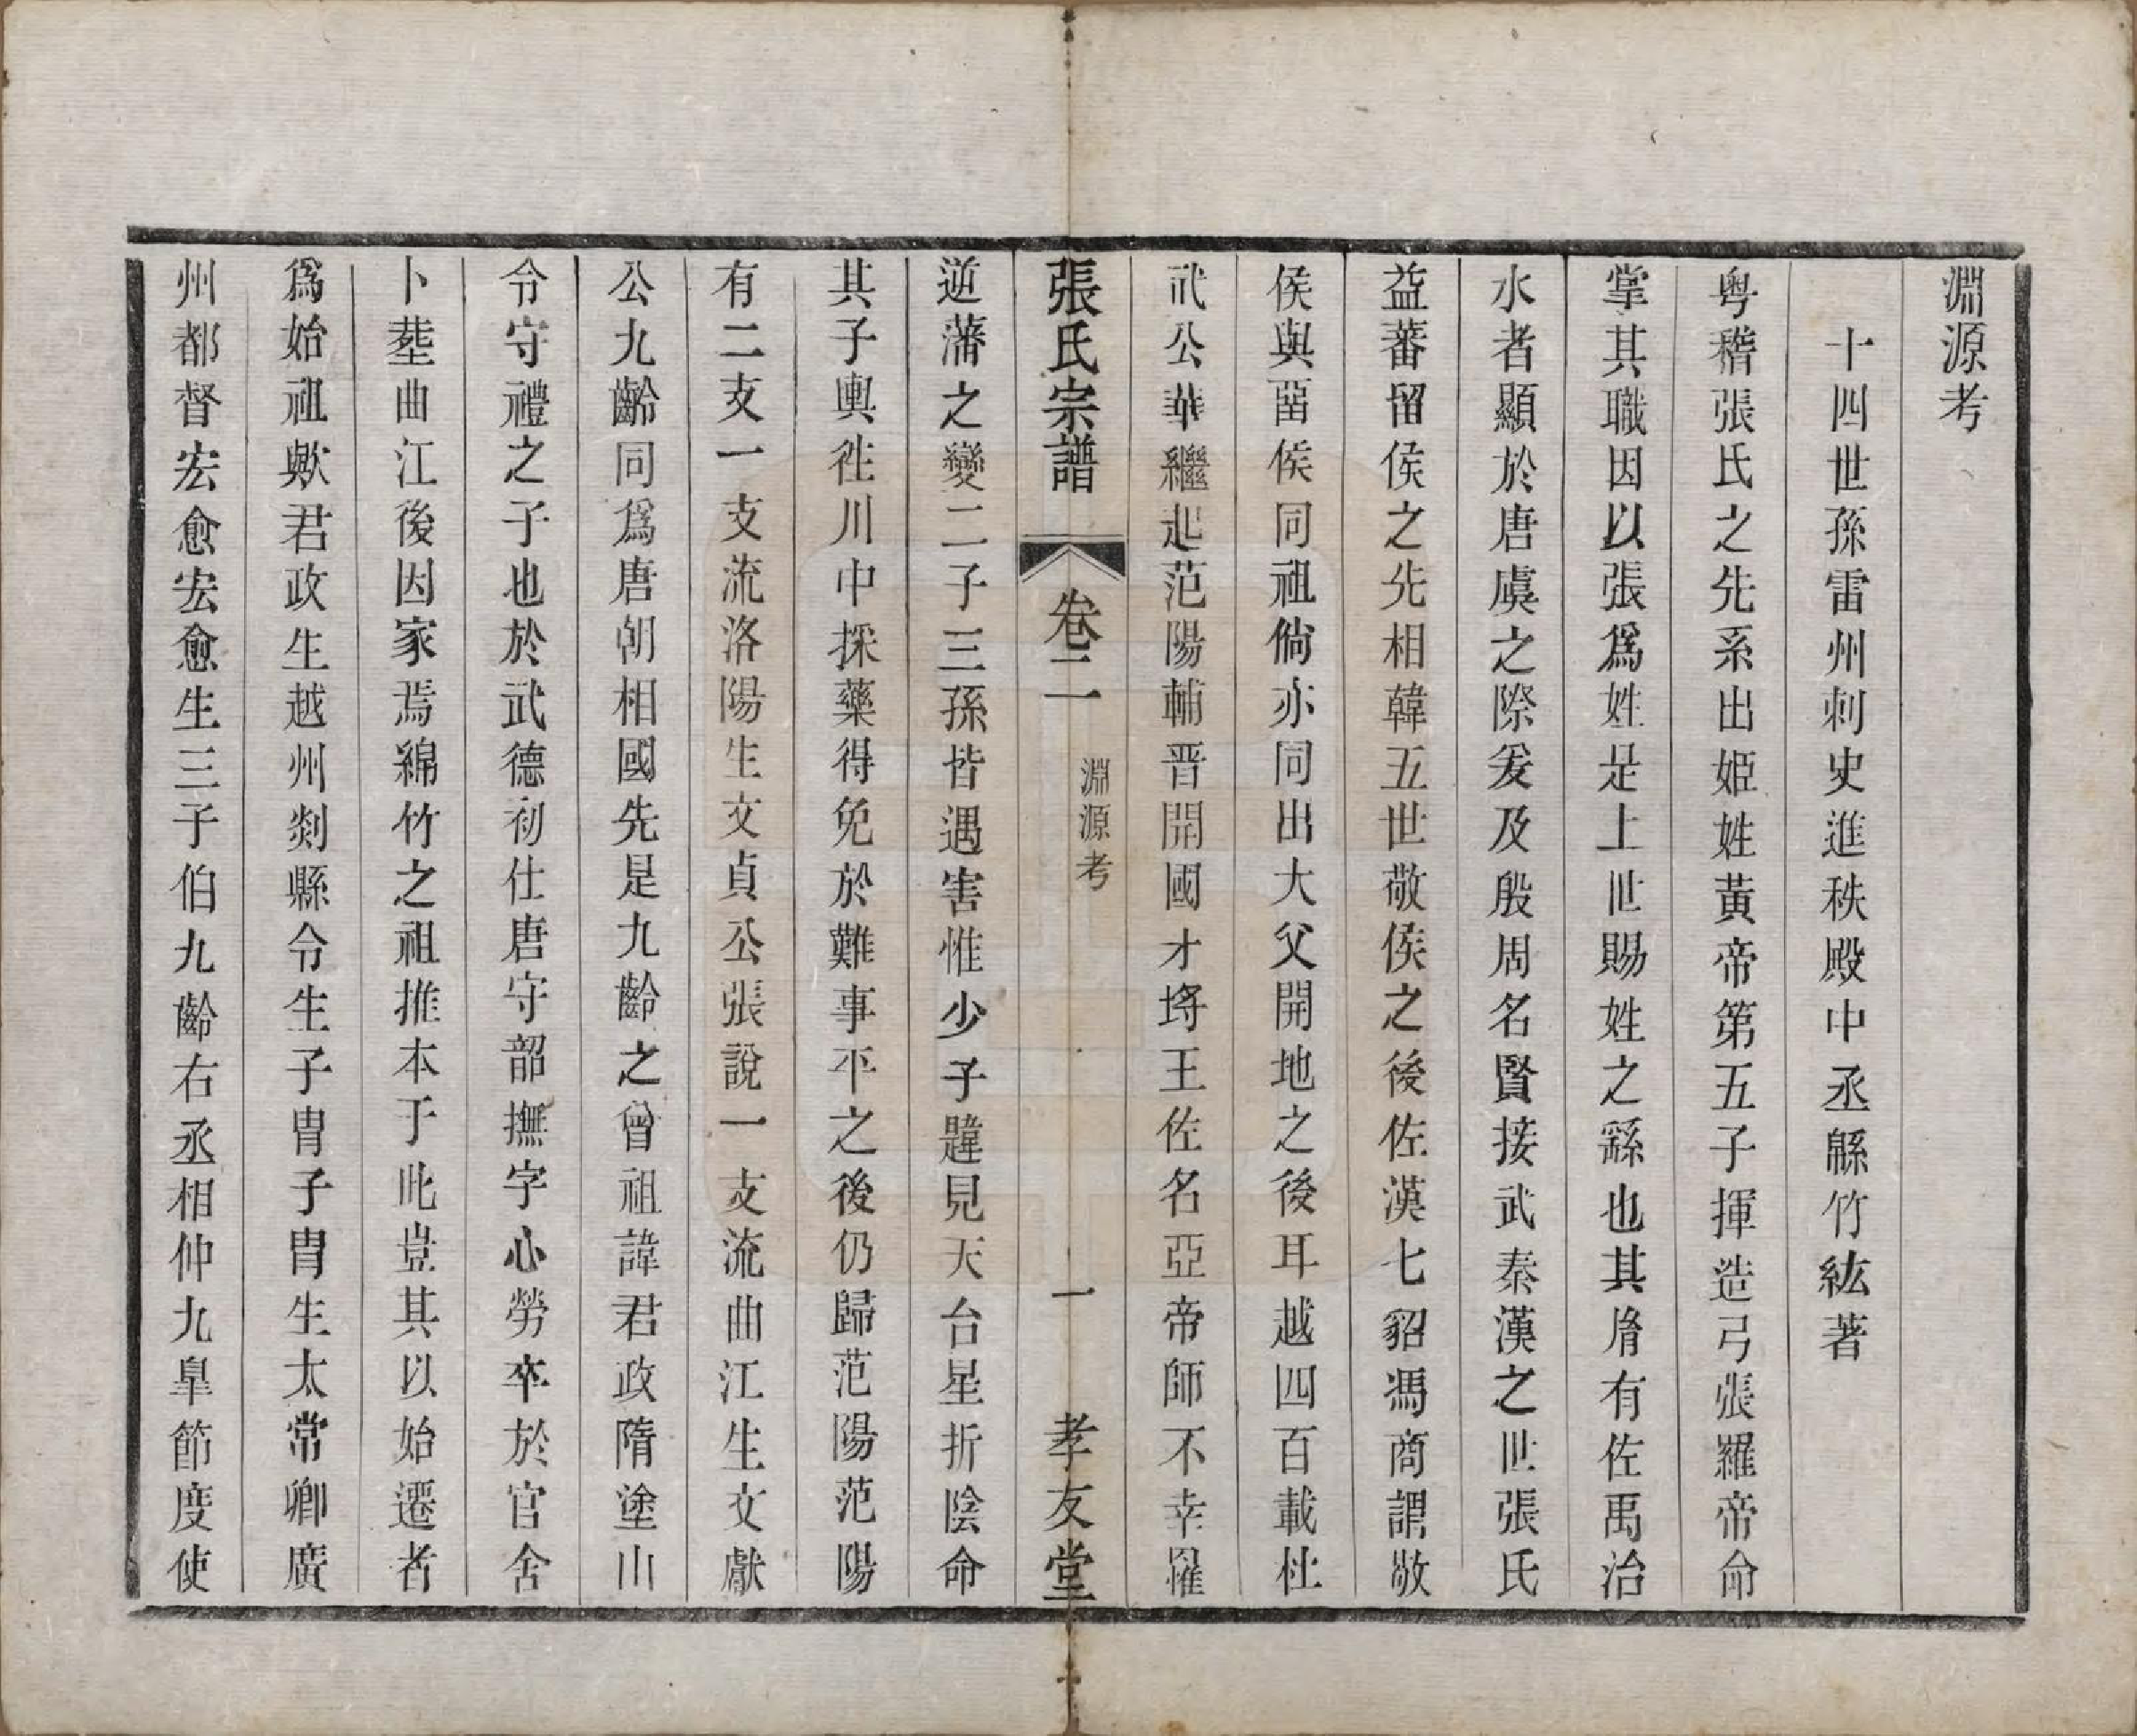 淵源考
十四世孫雷州刺史進秩殿中丞緜竹紘著
粤稽張氏之先系出姬姓黃帝第五子揮造弓張羅帝命
掌其職因以張爲姓是上世賜姓之繇也其㡹有佐禹治
水者顯於唐虞之際爰及殷周名賢接武秦漢之世張氏
益蕃留侯之先相韓五世敬侯之後佐漢七貂馮商謂敬
侯與畱侯同祖倘亦同出大父開地之後耳越四百載杜
武公華繼起范陽輔晋開國才埒王佐名亞帝師不幸罹
張氏宗譜 卷二 淵源考 一 孝友堂
逆藩之變二子三孫皆遇害惟少子韙見天台星折陰命
其子輿徃川中採藥得免於難事平之後仍歸范陽范陽
有二支一支流洛陽生文貞公張說一支流曲江生文獻
公九齡同爲唐朝相國先是九齡之曾祖諱君政隋塗山
令守禮之子也於武德初仕唐守韶撫字心勞卒於官舍
卜塟曲江後因家焉綿竹之祖推本于此豈其以始遷者
爲始祖歟君政生越州剡縣令生子冑子冑生太常卿廣
州都督宏愈宏愈生三子伯九齡右丞相仲九臯節度使